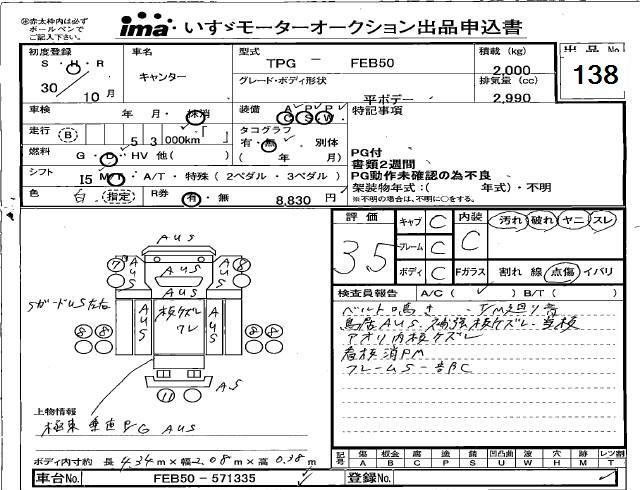 ㊟赤太枠内は必ず
ボールペンで
ご記入下さい。
ima いすゞモーターオークション出品申込書
初度登録 車名 型式 積載 (kg) 出品No
S・H・R キャンター TPG － FEB50 2,000 138
30 10月 グレード・ボディ形状 排気量 (cc)
平ボデー 2,990
車検 年 月・抹消 装備 A P P
C S W 特記事項
走行 B 5 3 000km タコグラフ
有・無 別体
( 年 月)
燃料 G・D・HV 他( ) PG付
書類2週間
シフト I5 M T・A/T・特殊 (2ペダル・3ペダル) PG動作未確認の為不良
架装物年式:( 年式)・不明
色 白 指定 R券 有・無 8,830 円 ※不明の場合は、不明に○をする。
評価 キャブ C 内装 汚れ 破れ ヤニ スレ
3.5 フレーム C C
ボディ C Fガラス 割れ 線 点傷 イバリ
検査員報告 A/C ( ) B/T ( )
ベルト鳴き T/M廻り音
鳥居AUS 補強板ケズレ
アオリ内板ケズレ
看板消PM
フレームS-部BC
AUS
7 8
AUS AUS
AUS
SガードUS左右
AUS 板ケズレ AUS
8 8 8 8
11
AUS
上物情報
極東 垂直P/G AUS
ボディ内寸約 長 4.34 m×幅 2.08 m×高 0.38 m
記号 傷 板金 腐 塗 錆 凹凸曲 波 穴 跡 レツ割
A B C P S U W H M T
車台No. FEB50-571335 登録No.